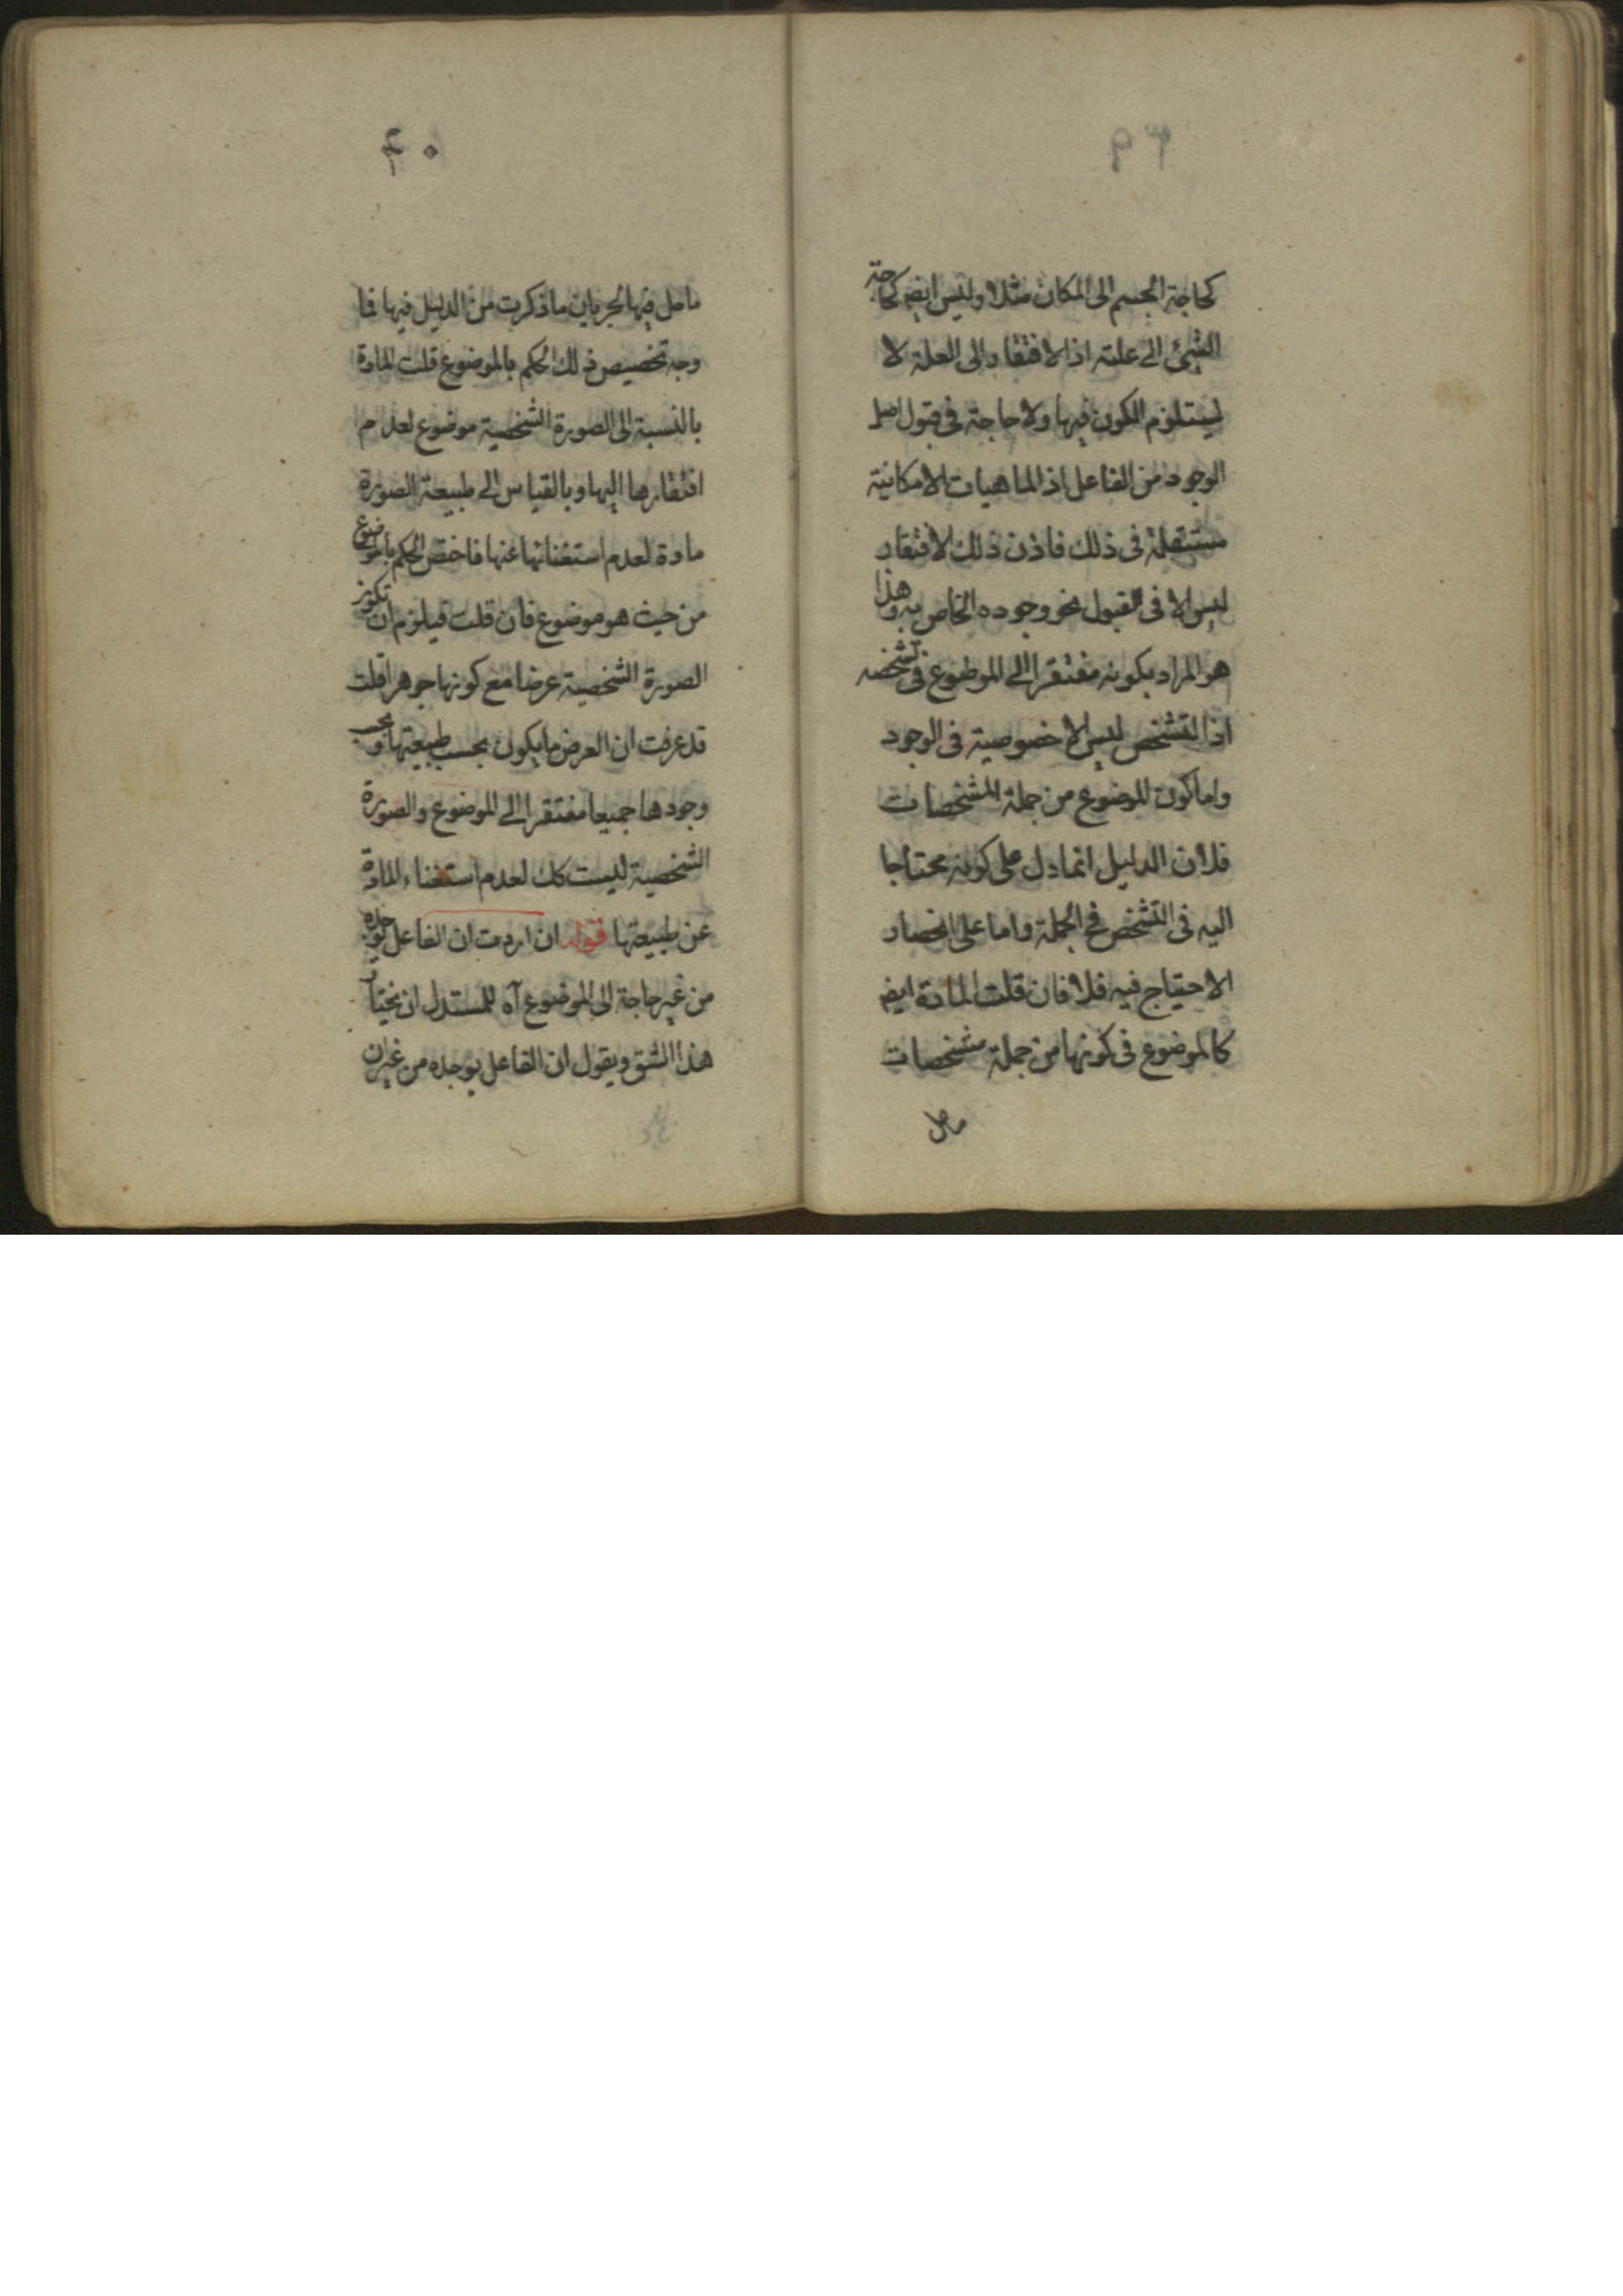 ٣٩
كحاجة الجسم الى المكان مثلا وليس ايضا كحاجة
الشئ الى علته اذ الافتقار الى العلة لا
يستلزم الكون فيها ولا حاجة فى قبول اصل
الوجود من الفاعل اذ الماهيات الامكانية
مستقلة فى ذلك فاذن ذلك الافتقار
ليس الا فى القبول نحو وجوده الخاص به وهذا
هو المراد بكونه مفتقرا الى الموضوع فى تشخصه
اذ التشخص ليس الا خصوصية فى الوجود
واما كون الموضوع من جملة المشخصات
فلان الدليل انما دل على كونه محتاجا
اليه فى التشخص فى الجملة واما على انحصار
الاحتياج فيه فلا فان قلت المادة ايضا
كالموضوع فى كونها من جملة مشخصات
ما حل
٤٠
ما حل فيها لجريان ما ذكرت من الدليل فيها فما
وجه تخصيص ذلك الحكم بالموضوع قلت المادة
بالنسبة الى الصورة الشخصية موضوع لعدم
افتقارها اليها وبالقياس الى طبيعة الصورة
مادة لعدم استغنائها عنها فاختص الحكم بالموضوع
من حيث هو موضوع فان قلت فيلزم ان تكون
الصورة الشخصية عرضا مع كونها جوهرا قلت
قد عرفت ان العرض ما يكون بحسب طبيعتها وبحسب
وجودها جميعا مفتقرا الى الموضوع والصورة
الشخصية ليست كك لعدم استغناء المادة
عن طبيعتها قوله ان اردت ان الفاعل يوجده
من غير حاجة الى الموضوع آه للمستدل ان يختار
هذا الشق ويقول ان الفاعل يوجده من غير ان